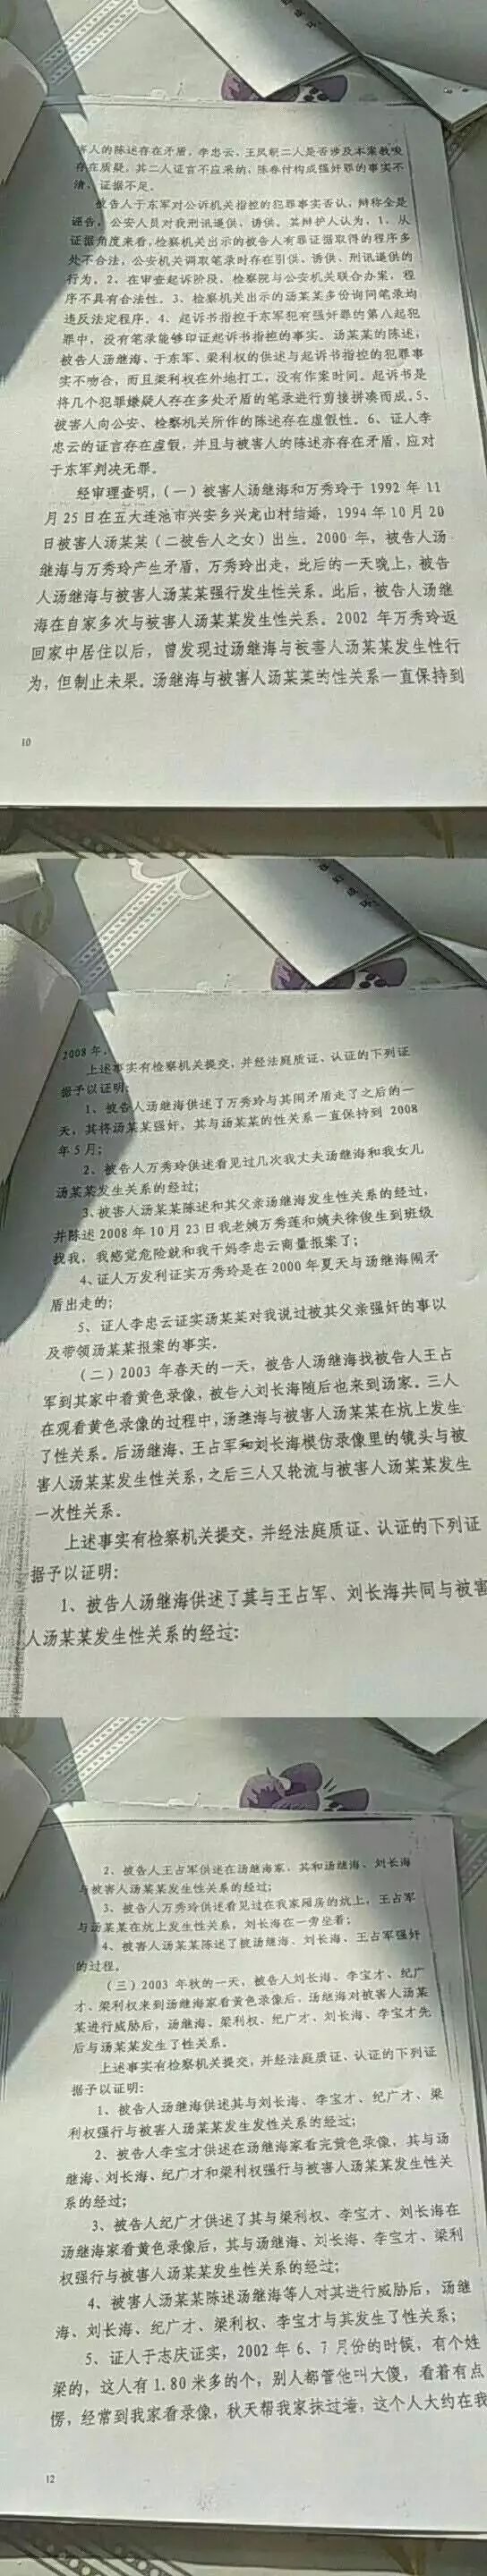 害人的陈述存在矛盾，李忠云、王凤朝二人是否涉及本案教唆
存在质疑，其二人证言不应采纳，陈春付构成强奸罪的事实不
清，证据不足。
被告人于东军对公诉机关指控的犯罪事实否认，辩称全是
诬告，公安人员对我刑讯逼供、诱供。其辩护人认为，1、从
证据角度来看，检察机关出示的被告人有罪证据取得的程序多
处不合法，公安机关调取笔录时存在引供、诱供、刑讯逼供的
行为。2、在审查起诉阶段，检察院与公安机关联合办案，程
序不具有合法性。3、检察机关出示的汤某某多份询问笔录均
违反法定程序。4、起诉书指控于东军犯有强奸罪的第八起犯
罪中，没有笔录能够印证起诉书指控的事实。汤某某的陈述，
被告人汤继海、于东军、梁利权的供述与起诉书指控的犯罪事
实不吻合，而且梁利权在外地打工，没有作案时间。起诉书是
将几个犯罪嫌疑人存在多处矛盾的笔录进行剪接拼凑而成。5、
被害人向公安、检察机关所作的陈述存在虚假性。6、证人李
忠云的证言存在虚假，并且与被害人的陈述亦存在矛盾，应对
于东军判决无罪。
经审理查明，（一）被害人汤继海和万秀玲于 1992 年 11
月 25 日在五大连池市兴安乡兴龙山村结婚，1994 年 10 月 20
日被害人汤某某（二被告人之女）出生。2000 年，被告人汤
继海与万秀玲产生矛盾，万秀玲出走，此后的一天晚上，被告
人汤继海与被害人汤某某强行发生性关系。此后，被告人汤继
海在自家多次与被害人汤某某发生性关系。2002 年万秀玲返
回家中居住以后，曾发现过汤继海与被害人汤某某发生性行
为，但制止未果。汤继海与被害人汤某某的性关系一直保持到
10
2008 年。
上述事实有检察机关提交，并经法庭质证、认证的下列证
据予以证明：
1、被告人汤继海供述了万秀玲与其闹矛盾走了之后的一
天，其将汤某某强奸，其与汤某某的性关系一直保持到 2008
年 5 月；
2、被告人万秀玲供述看见过几次我丈夫汤继海和我女儿
汤某某发生关系的经过；
3、被害人汤某某陈述和其父亲汤继海发生性关系的经过，
并陈述 2008 年 10 月 23 日我老姨万秀莲和姨夫徐俊生到班级
找我，我感觉危险就和我干妈李忠云商量报案了；
4、证人万发利证实万秀玲是在 2000 年夏天与汤继海闹矛
盾出走的；
5、证人李忠云证实汤某某对我说过被其父亲强奸的事以
及带领汤某某报案的事实。
（二）2003 年春天的一天，被告人汤继海找被告人王占
军到其家中看黄色录像，被告人刘长海随后也来到汤家。三人
在观看黄色录像的过程中，汤继海与被害人汤某某在炕上发生
了性关系。后汤继海、王占军和刘长海模仿录像里的镜头与被
害人汤某某发生性关系，之后三人又轮流与被害人汤某某发生
一次性关系。
上述事实有检察机关提交，并经法庭质证、认证的下列证
据予以证明：
1、被告人汤继海供述了其与王占军、刘长海共同与被害
人汤某某发生性关系的经过：
2、被告人王占军供述在汤继海家，其和汤继海、刘长海
与被害人汤某某发生性关系的经过；
3、被告人万秀玲供述看见过在我家厢房的炕上，王占军
与汤某某在炕上发生性关系，刘长海在一旁坐着；
4、被害人汤某某陈述了被汤继海、刘长海、王占军强奸
的过程。
（三）2003 年秋的一天，被告人刘长海、李宝才、纪广
才、梁利权来到汤继海家看黄色录像后，汤继海对被害人汤某
某进行威胁后，汤继海、梁利权、纪广才、刘长海、李宝才先
后与汤某某发生了性关系。
上述事实有检察机关提交，并经法庭质证、认证的下列证
据予以证明：
1、被告人汤继海供述其与刘长海、李宝才、纪广才、梁
利权强行与被害人汤某某发生发性关系的经过；
2、被告人李宝才供述在汤继海家看完黄色录像，其与汤
继海、刘长海、纪广才和梁利权强行与被害人汤某某发生性关
系的经过；
3、被告人纪广才供述了其与梁利权、李宝才、刘长海在
汤继海家看黄色录像后，其与汤继海、刘长海、李宝才、梁利
权强行与被害人汤某某发生性关系的经过；
4、被害人汤某某陈述汤继海等人对其进行威胁后，汤继
海、刘长海、纪广才、梁利权、李宝才与其发生了性关系；
5、证人于志庆证实，2002 年 6、7 月份的时候，有个姓
梁的，这人有 1.80 米多的个，别人都管他叫大傻，看着有点
愣，经常到我家看录像，秋天帮我家抹过墙，这个人大约在我
12